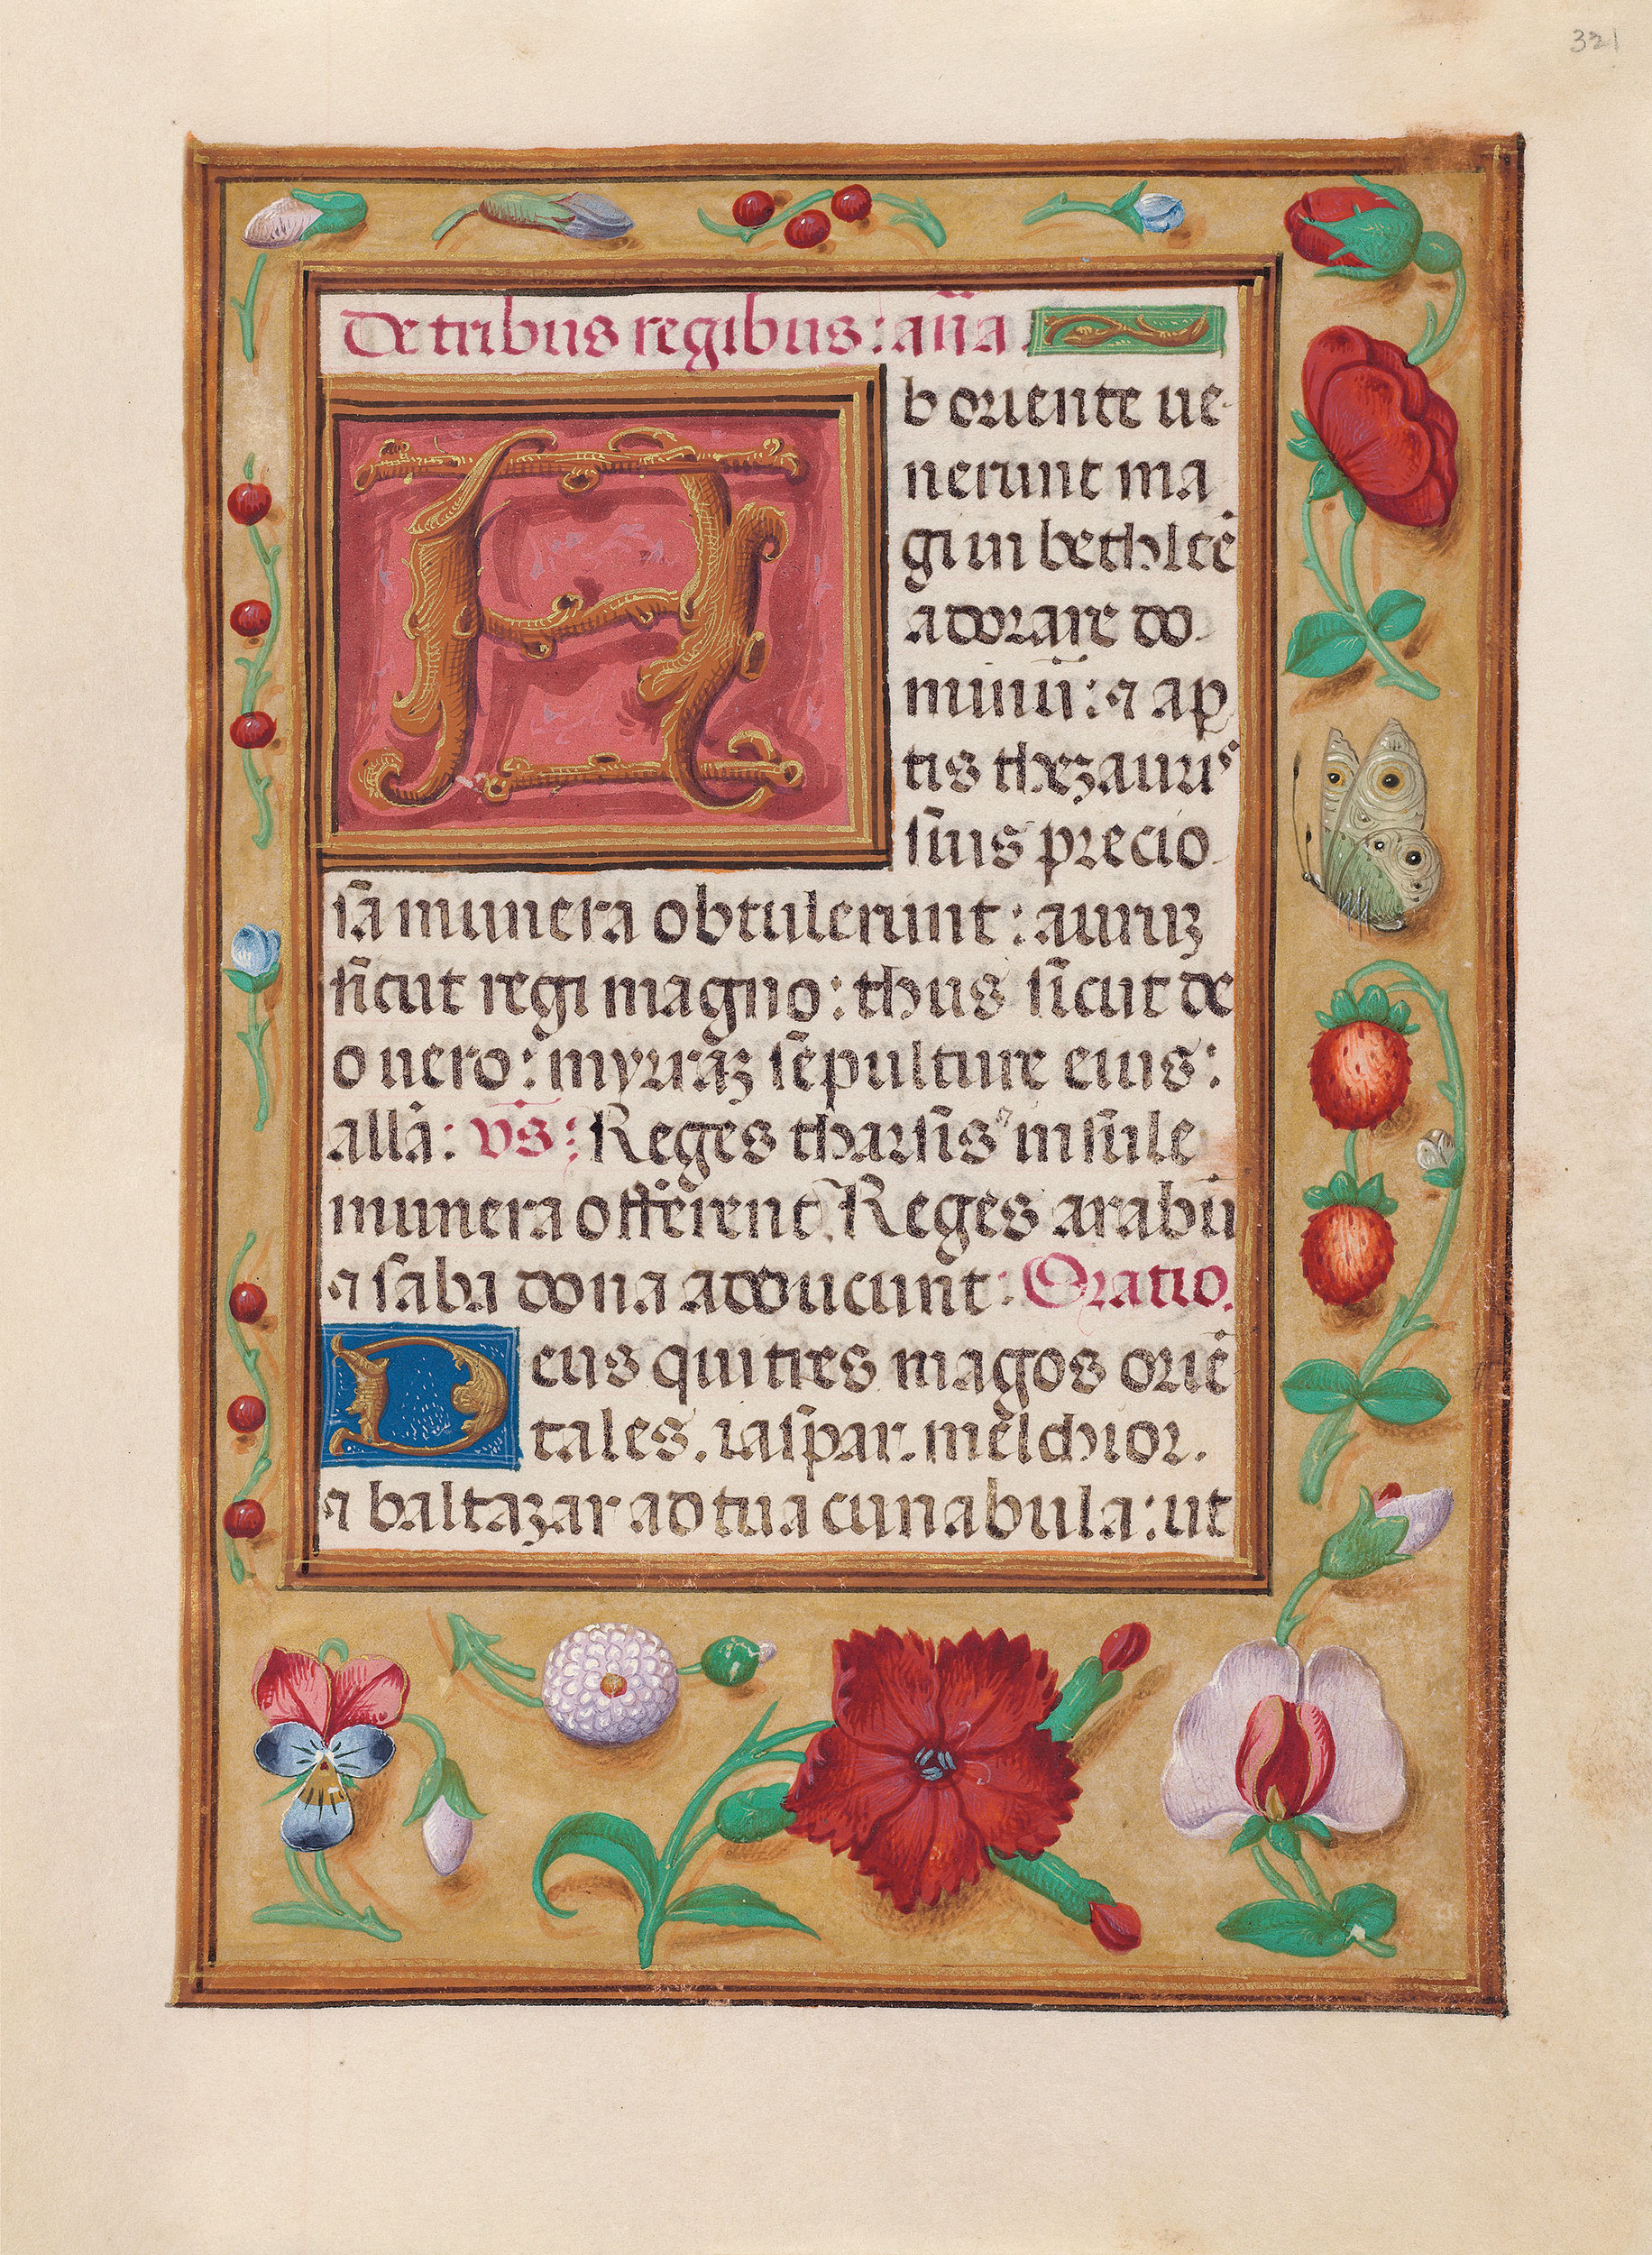 321
De tribus regibus: añа.
Ab oriente ue-
nerunt ma
gi in bethleē
adorare do-
minū: ⁊ ap
tis thezauris
suis precio-
sa munera obtulerunt: auruꝫ
sicut regi magno: thus sicut de
o uero: myrraꝫ sepulture eius:
alla: vs: Reges tharsis ⁊ insule
munera offerent. Reges arabū
⁊ saba dona adducunt: Oratio.
Deus qui tres magos oriē
tales. iaspar. melchior.
⁊ baltazar ad tua cunabula: ut